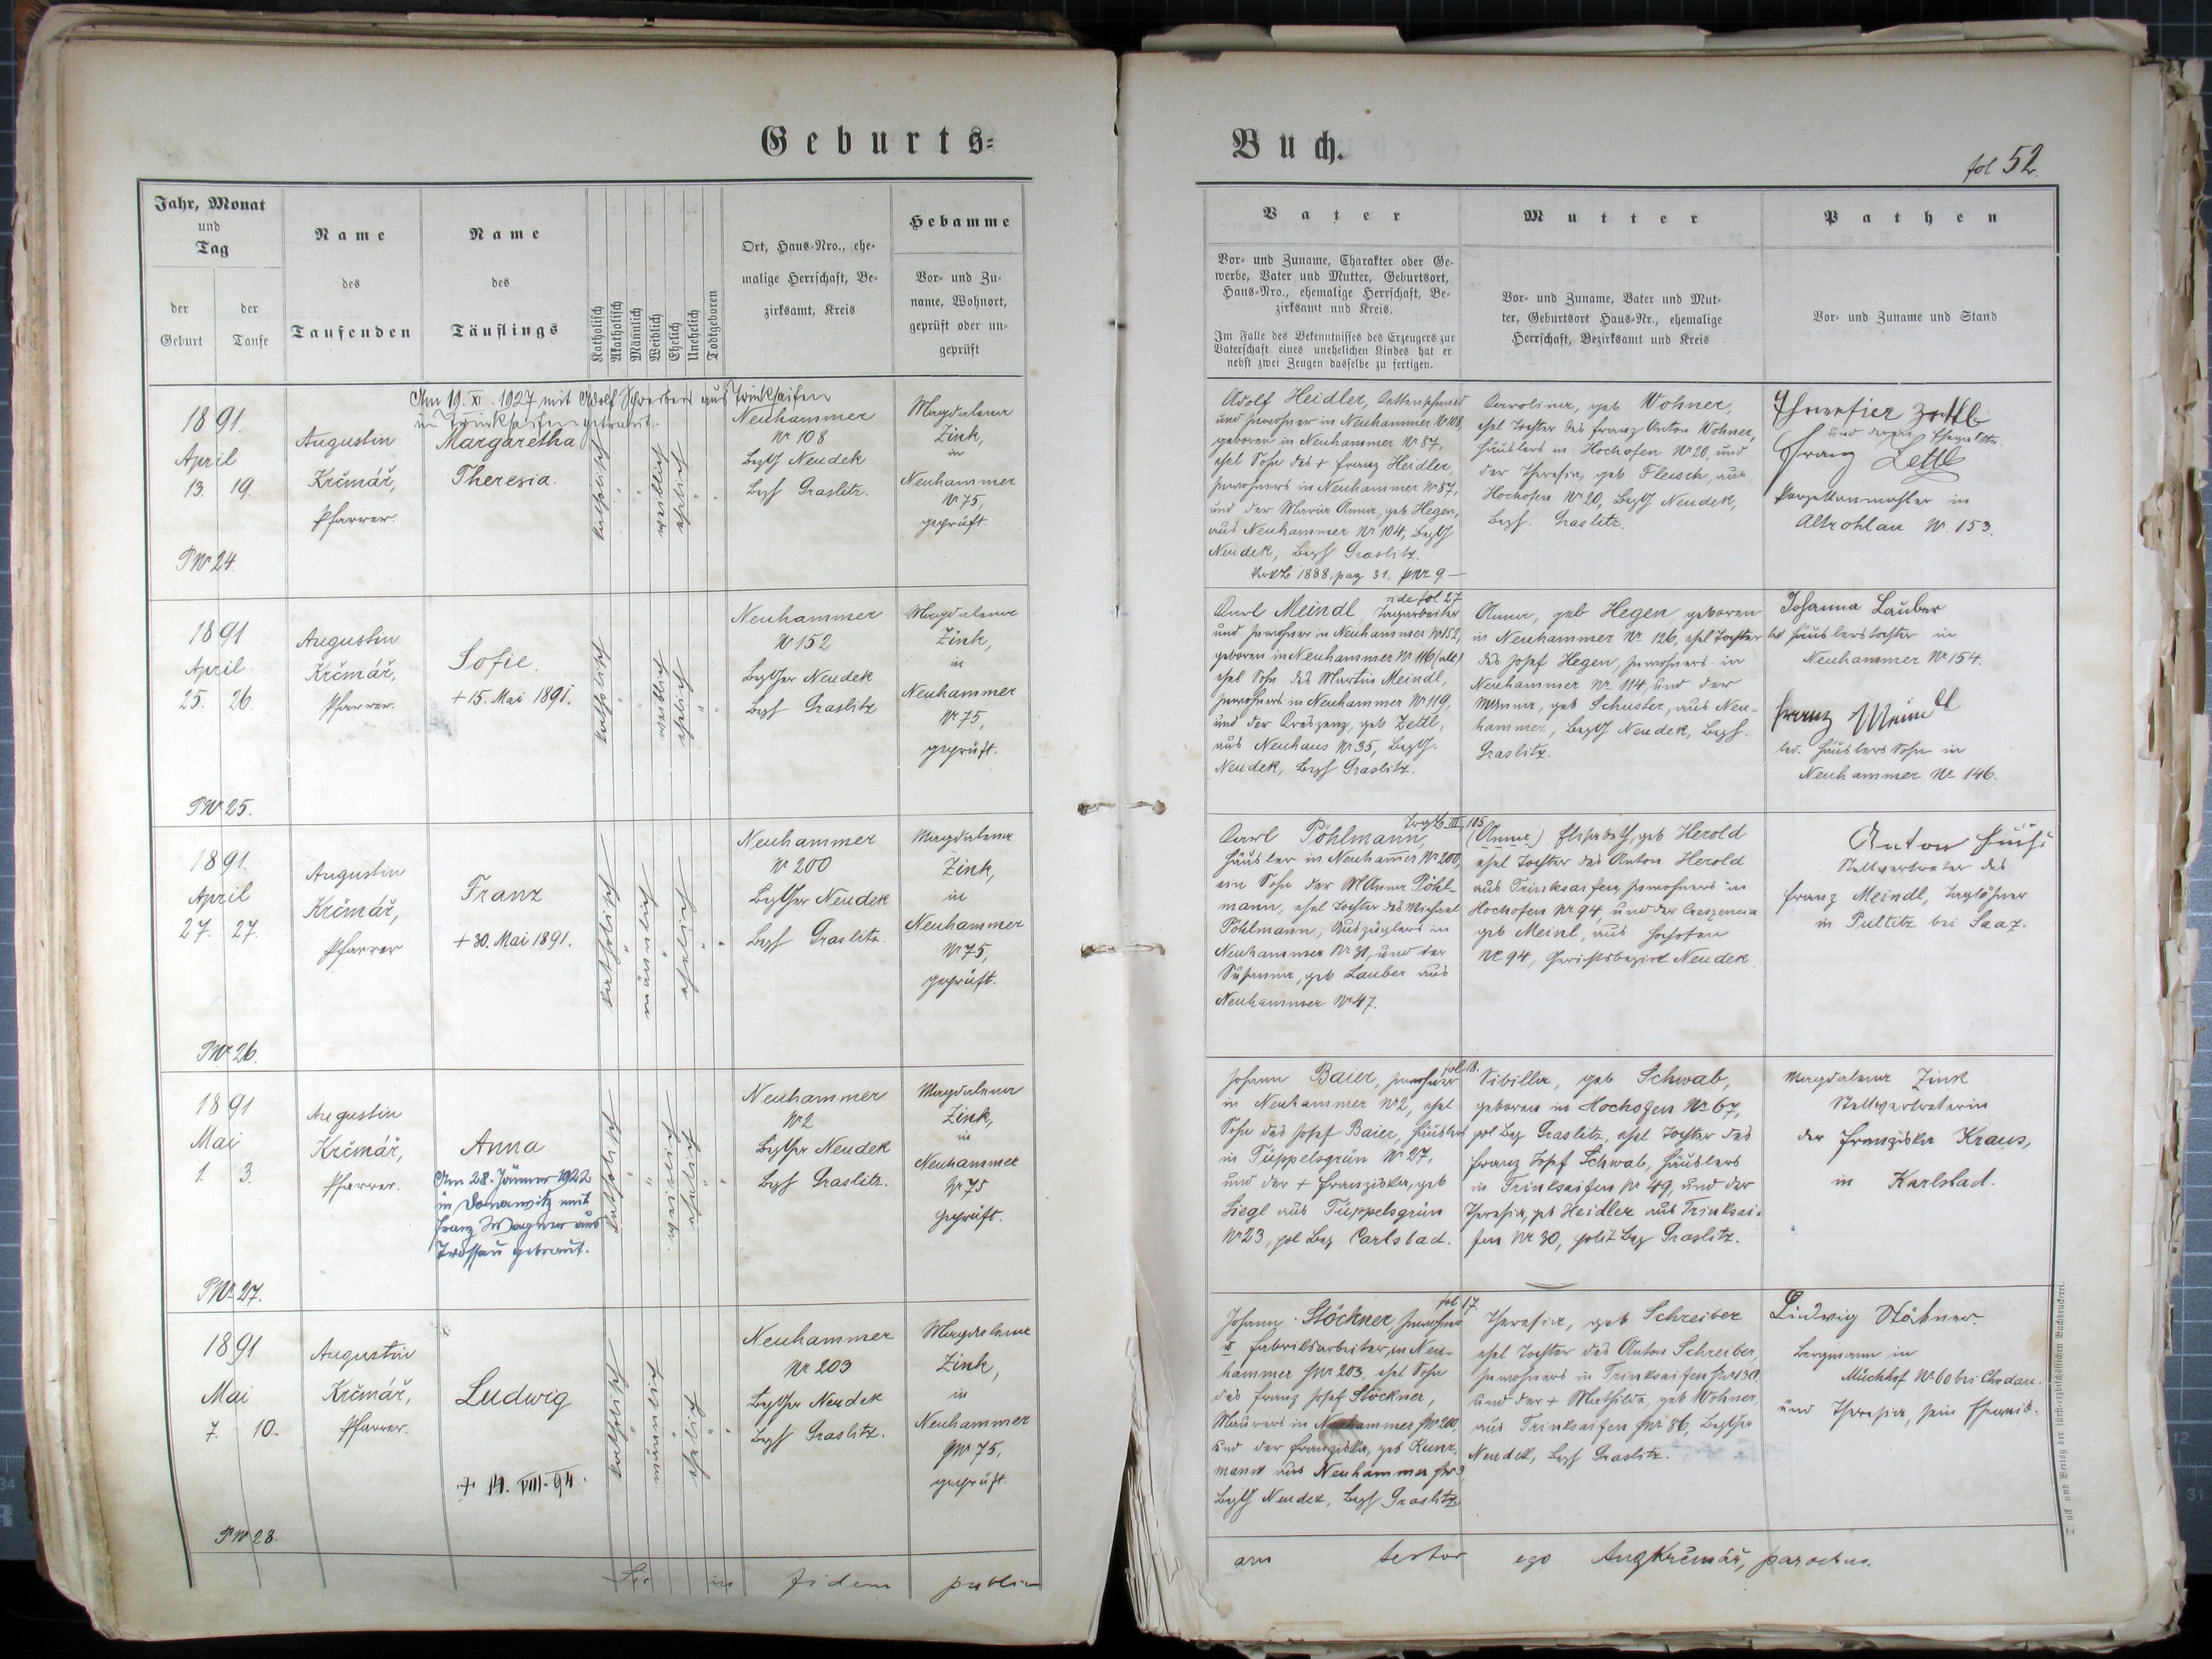 Geburts=
Jahr, Monat
und
Tag
der
Geburt
der
Taufe
Name
des
Taufenden
Name
des
Täuflings
Katholisch
Akatholisch
Männlich
Weiblich
Ehelich
Unehelich
Todtgeboren
Ort, Haus=Nro., ehe=
malige Herrschaft, Be=
zirksamt, Kreis
Hebamme
Vor= und Zu=
name, Wohnort,
geprüft oder un=
geprüft
Am 19. XI. 1927 mit Adolf Schreiber aus Trinksaifen
in Trinksaifen getraut.
1891.
April
13. 19.
PNr 24.
Augustin
Krčmář,
Pfarrer.
Margaretha
Theresia.
katholisch
weiblich
ehelich
Neuhammer
Nr 108
BezG Neudek
Bezh Graslitz.
Magdalena
Zink,
in
Neuhammer
Nr 75,
geprüft
1891
April
25. 26.
PNr 25.
Augustin
Krčmář,
Pfarrer.
Sofie.
+ 15. Mai 1891.
katholisch
weiblich
ehelich
Neuhammer
Nr 152
BezGer Neudek
Bezh Graslitz
Magdalena
Zink,
in
Neuhammer
Nr 75,
geprüft.
1891.
April
27. 27.
PNr 26.
Augustin
Krčmář,
Pfarrer
Franz
+ 30. Mai 1891.
katholisch
männlich
ehelich
Neuhammer
Nr 200
BezGer Neudek
Bezh Graslitz.
Magdalena
Zink,
in
Neuhammer
Nr 75,
geprüft.
1891
Mai
1. 3.
PNr 27.
Augustin
Krčmář,
Pfarrer.
Anna
Am 28. Jänner 1922
in Donawitz mit
Franz Wagner aus
Trossau getraut.
katholisch
weiblich
ehelich
Neuhammer
Nr 2
BezGer Neudek
Bezh Graslitz.
Magdalena
Zink,
in
Neuhammer
Nr 75
geprüft.
1891
Mai
7. 10.
PNr 28.
Augustin
Krčmář,
Pfarrer.
Ludwig
+ 14. VIII. 94.
katholisch
männlich
ehelich
Neuhammer
Nr 203
BezGer Neudek
Bezh Graslitz.
Magdalena
Zink,
in
Neuhammer
PNr 75,
geprüft.
Sic in fidem public
Buch.
fol 52.
Vater
Vor= und Zuname, Charakter oder Ge=
werbe, Vater und Mutter, Geburtsort,
Haus=Nro., ehemalige Herrschaft, Be=
zirksamt und Kreis.
Im Falle des Bekenntnisses des Erzeugers zur
Vaterschaft eines unehelichen Kindes hat er
nebst zwei Zeugen dasselbe zu fertigen.
Mutter
Vor= und Zuname, Vater und Mut=
ter, Geburtsort Haus=Nr., ehemalige
Herrschaft, Bezirksamt und Kreis
Pathen
Vor= und Zuname und Stand
Adolf Heidler, Kettenschmied
und Inwohner in Neuhammer Nr 108,
geboren in Neuhammer Nr 87,
ehel Sohn des + Franz Heidler,
Inwohners in Neuhammer Nr 87,
und der Maria Anna, geb Hegen,
aus Neuhammer Nr 104, BezG
Neudek, Bezh Graslitz.
1888, pag 31. PNr 9
Karolina, geb Wohner,
ehel Tochter des Franz Anton Wohner,
Häuslers in Hochofen Nr 20, und
der Theresia, geb Fleisch, aus
Hochofen Nr 20, BezG Neudek,
Bezh. Graslitz.
Theresia Zettl
und deren Ehegatte
Franz Zettl
Porzellanmahler in
Altrohlau Nr. 153.
vide fol 27
Karl Meindl Tagarbeiter
und Inwohner in Neuhammer Nr 152,
geboren in Neuhammer Nr 116 (alt)
ehel Sohn des Martin Meindl,
Inwohners in Neuhammer Nr 119,
und der Kreszenz, geb Zettl,
aus Neuhaus Nr 35, BezG.
Neudek, Bezh Graslitz.
Anna, geb Hegen, geboren
in Neuhammer Nr 126, ehel Tochter
des Josef Hegen, Inwohners in
Neuhammer Nr 114, und der
MAnna, geb Schuster, aus Neu-
hammer, BezG Neudek, Bezh.
Graslitz.
Johanna Lauber
led Häuslerstochter in
Neuhammer Nr 154.
Franz Meindl
led. Häuslers Sohn in
Neuhammer Nr 146.
III, 105
Karl Pöhlmann,
Häusler in Neuhammer Nr 200,
ein Sohn der MAnna Pöhl-
mann, ehel Tochter des Michael
Pöhlmann, Auszüglers in
Neuhammer Nr 31, und der
Susanna, geb Lauber aus
Neuhammer Nr 47.
(Anna) Elisabeth, geb Herold
ehel Tochter des Anton Herold
aus Trinksaifen, Inwohners in
Hochofen Nr 94, und der Creszencia
geb Meinl, aus Hochofen
Nr 94, Gerichtsbezirk Neudek
Anton Fuchs
Stellvertreter des
Franz Meindl, Taglöhner
in Pultitz bei Saaz.
fol 18.
Johann Baier, Inwohner
in Neuhammer Nr 2, ehel
Sohn des Josef Baier, Häuslers
in Tüppelsgrün Nr 27,
und der + Franziska, geb
Siegl aus Tüppelsgrün
Nr 23, pol Bez Carlsbad.
Sibilla, geb Schwab,
geboren in Hochofen Nr 67,
pol Bez Graslitz, ehel Tochter des
Franz Josef Schwab, Häuslers
in Trinksaifen Nr 49, und der
Theresia, geb Heidler aus Trinksai-
fen Nr 30, polit Bez Graslitz.
Magdalena Zink
Stellvertreterin
der Franziska Kraus,
in Karlsbad.
fol 17.
Johann Stöckner, Inwohner
u Fabriksarbeiter, in Neu-
hammer PNr 203, ehel Sohn
des Franz Josef Stöckner,
Maurers in Neuhammer PNr 200,
und der Franziska, geb Kunz-
mann aus Neuhammer PNr 3
BezG Neudek, Bezh Graslitz
Theresia, geb Schreiber
ehel Tochter des Anton Schreiber,
Inwohners in Trinksaifen PNr 130
und der + Mathilda, geb Wohner,
aus Trinksaifen PNr 86, BezGer
Neudek, Bezh Graslitz.
Ludwig Stöckner
Bergmann in
Münchhof Nr 60 bei Chodau.
und Theresia, sein Eheweib.
am testor ego AugKrčmář, parochus.
Druck und Verlag der fürst-erzbischöflichen Buchdruckerei.